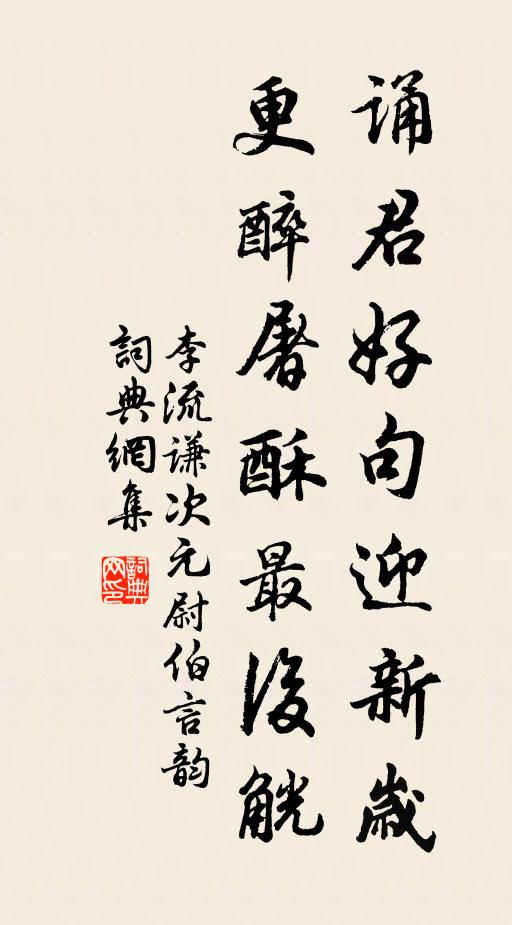 诵君好句迎新歲
更醉屠酥最後觥
李流谦次元尉伯言韵
詞典網集
詞典网印